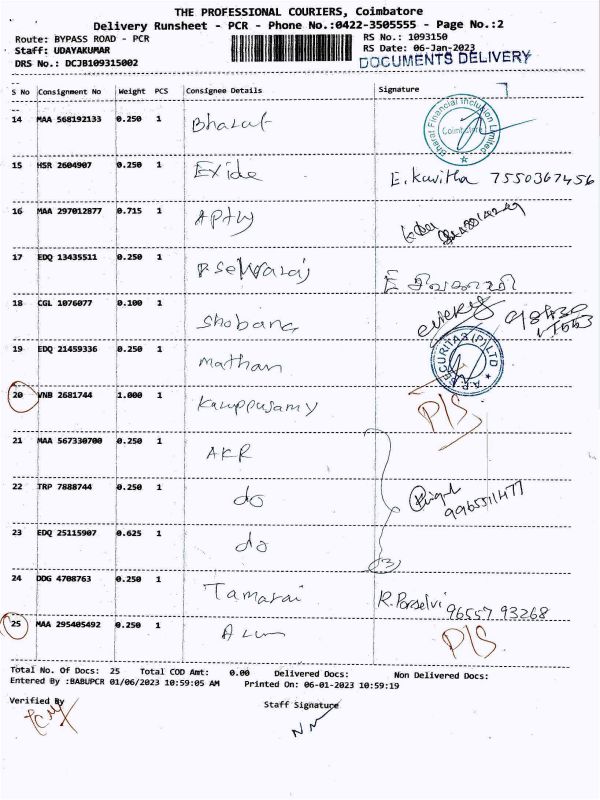 THE PROFESSIONAL COURIERS, Coimbatore
Delivery Runsheet - PCR - Phone No.:0422-3505555 - Page No.:2
Route: BYPASS ROAD - PCR
RS No.: 1093150
Staff: UDAYAKUMAR
RS Date: 06-Jan-2023
DRS No.: DCJB109315002
DOCUMENTS DELIVERY
S No Consignment No Weight PCS Consignee Details Signature
14 MAA 568192133 0.250 1 Bharat
Bharat Financial Inclusion Limited
Coimbatore
15 HSR 2604907 0.250 1 Exide E. Kavitha 7550367456
16 MAA 297012877 0.715 1 Aptiv
17 EDQ 13435511 0.250 1 P Selvaraj
18 CGL 1076077 0.100 1 Shobana
19 EDQ 21459336 0.250 1 Mathan
SECURITAS (P) LTD
20 VNB 2681744 1.000 1 Karuppusamy P/S
21 MAA 567330700 0.250 1 AKR
22 TRP 7888744 0.250 1 do
9965511477
23 EDQ 25115907 0.625 1 do
(3)
24 DDG 4708763 0.250 1 Tamarai R. Porselvi 96557 93268
25 MAA 295405492 0.250 1 Arun P/S
Total No. Of Docs: 25 Total COD Amt: 0.00 Delivered Docs: Non Delivered Docs:
Entered By :BABUPCR 01/06/2023 10:59:05 AM Printed On: 06-01-2023 10:59:19
Verified By
Staff Signature